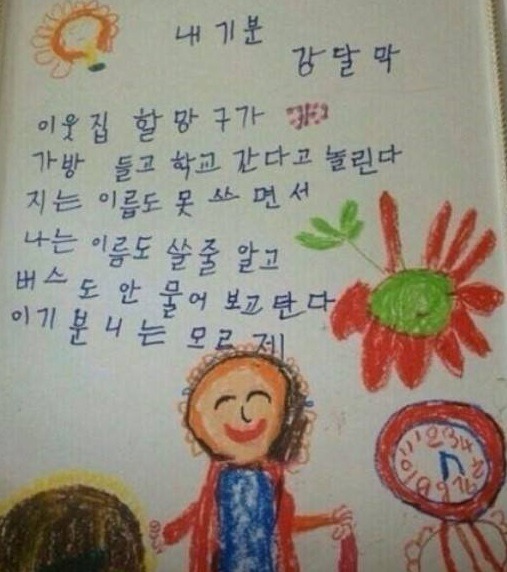 내 기분
강달막
이웃집 할망구가
가방 들고 학교 간다고 놀린다
지는 이름도 못 쓰면서
나는 이름도 쓸줄 알고
버스도 안 물어 보고 탄다
이기분 니는 모르제
12 1 2 3 4 5 6 7 8 9 10 11